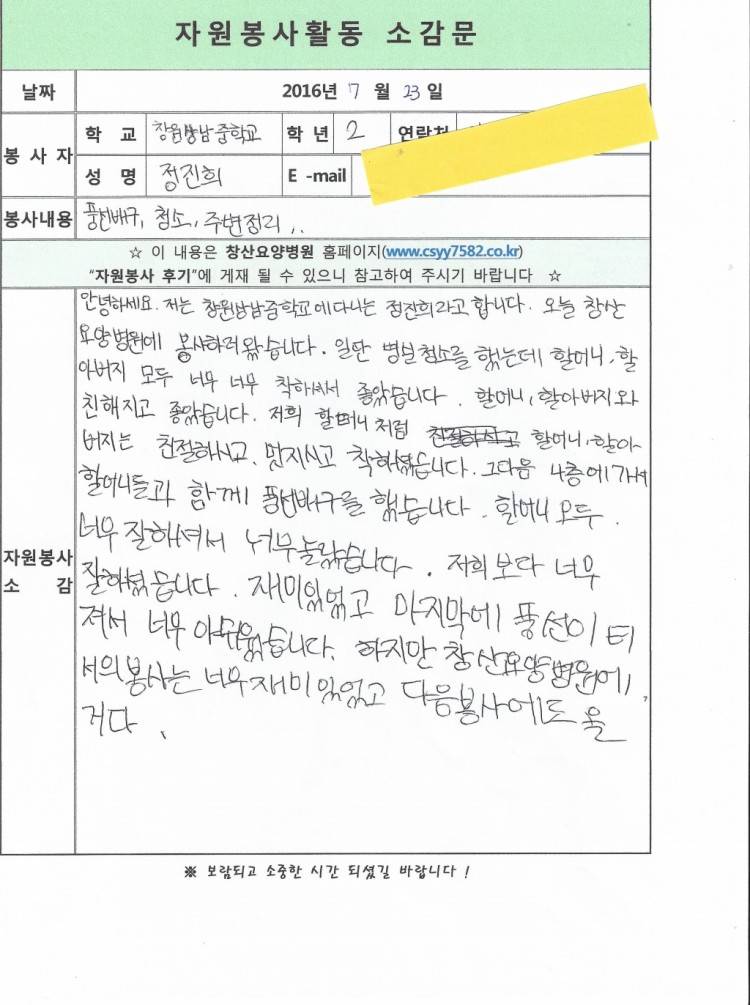 자원봉사활동 소감문
날짜 2016년 7 월 23 일
봉사자 학 교 창원상남중학교 학 년 2 연락처
성 명 정진희 E -mail
봉사내용 풍선배구, 청소, 주변정리,.
☆ 이 내용은 창산요양병원 홈페이지(www.csyy7582.co.kr)
"자원봉사 후기"에 게재 될 수 있으니 참고하여 주시기 바랍니다 ☆
자원봉사 소 감
안녕하세요. 저는 창원상남중학교에 다니는 정진희라고 합니다. 오늘 창산
요양병원에 봉사하러 왔습니다. 일단 병실청소를 했는데 할머니, 할
아버지 모두 너무 너무 착하셔서 좋았습니다. 할머니, 할아버지와
친해지고 좋았습니다. 저희 할머니 처럼 친절하시고 할머니, 할아
버지는 친절하시고, 멋지시고 착하셨습니다. 그다음 4층에 가서
할머니들과 함께 풍선배구를 했습니다. 할머니 모두.
너무 잘하셔서 너무 놀랐습니다. 저희 보다 너무
잘하셨습니다. 재미있었고 마지막에 풍선이 터
져서 너무 아쉬웠습니다. 하지만 창산요양병원에
서의 봉사는 너무 재미있었고 다음봉사에도 올
거다.
※ 보람되고 소중한 시간 되셨길 바랍니다 !